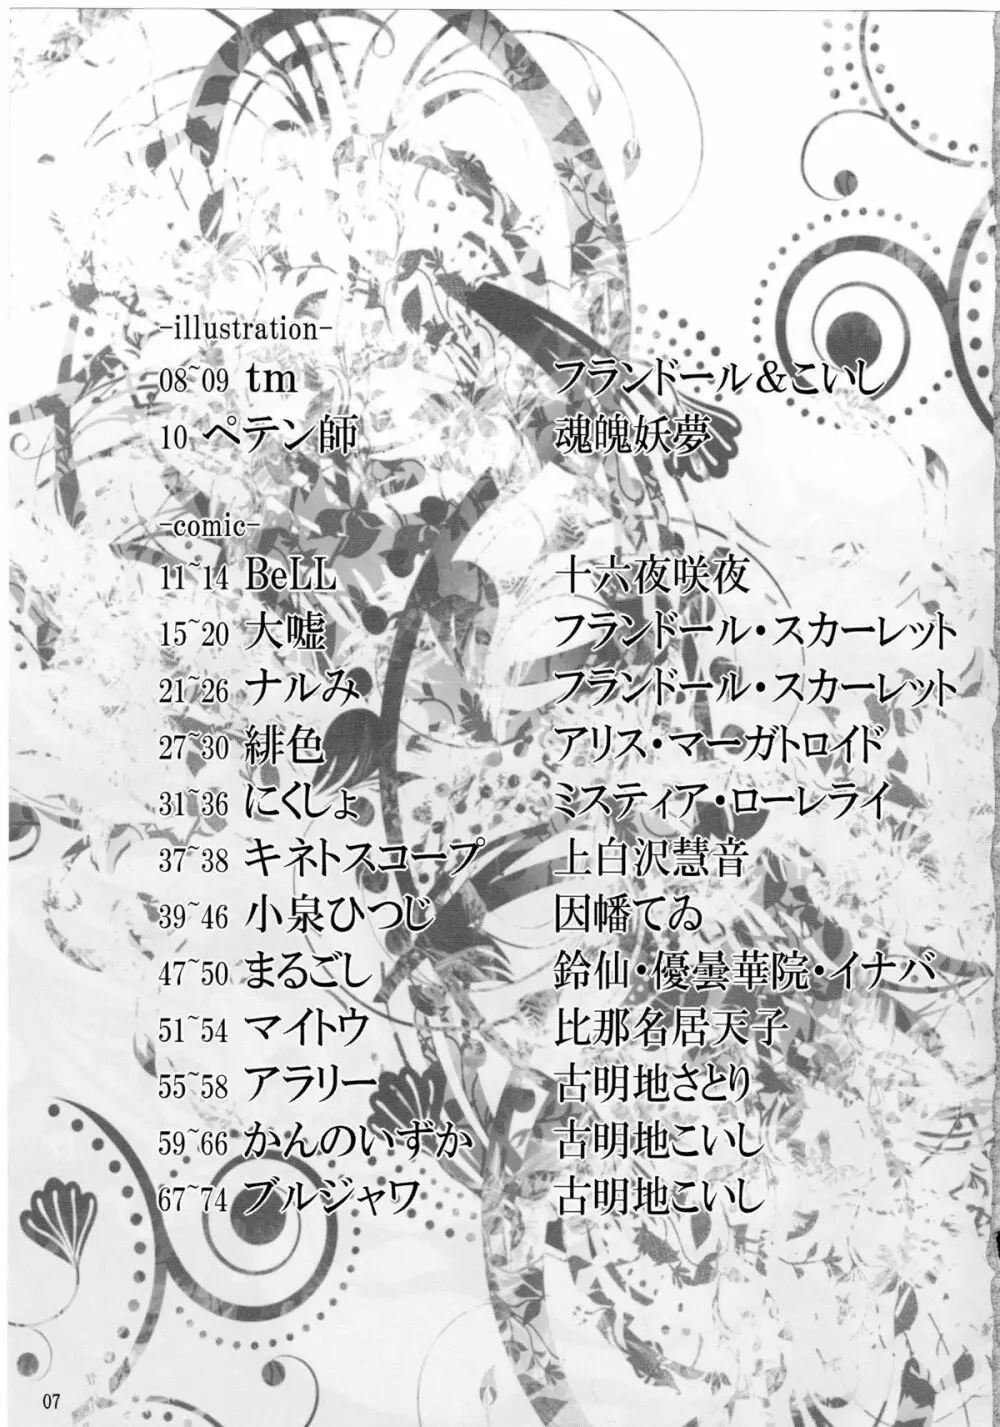 -illustration-
08~09 tm フランドール＆こいし
10 ペテン師 魂魄妖夢
-comic-
11~14 BeLL 十六夜咲夜
15~20 大嘘 フランドール・スカーレット
21~26 ナルみ フランドール・スカーレット
27~30 緋色 アリス・マーガトロイド
31~36 にくしょ ミスティア・ローレライ
37~38 キネトスコープ 上白沢慧音
39~46 小泉ひつじ 因幡てゐ
47~50 まるごし 鈴仙・優曇華院・イナバ
51~54 マイトウ 比那名居天子
55~58 アラリー 古明地さとり
59~66 かんのいずか 古明地こいし
67~74 ブルジャワ 古明地こいし
07